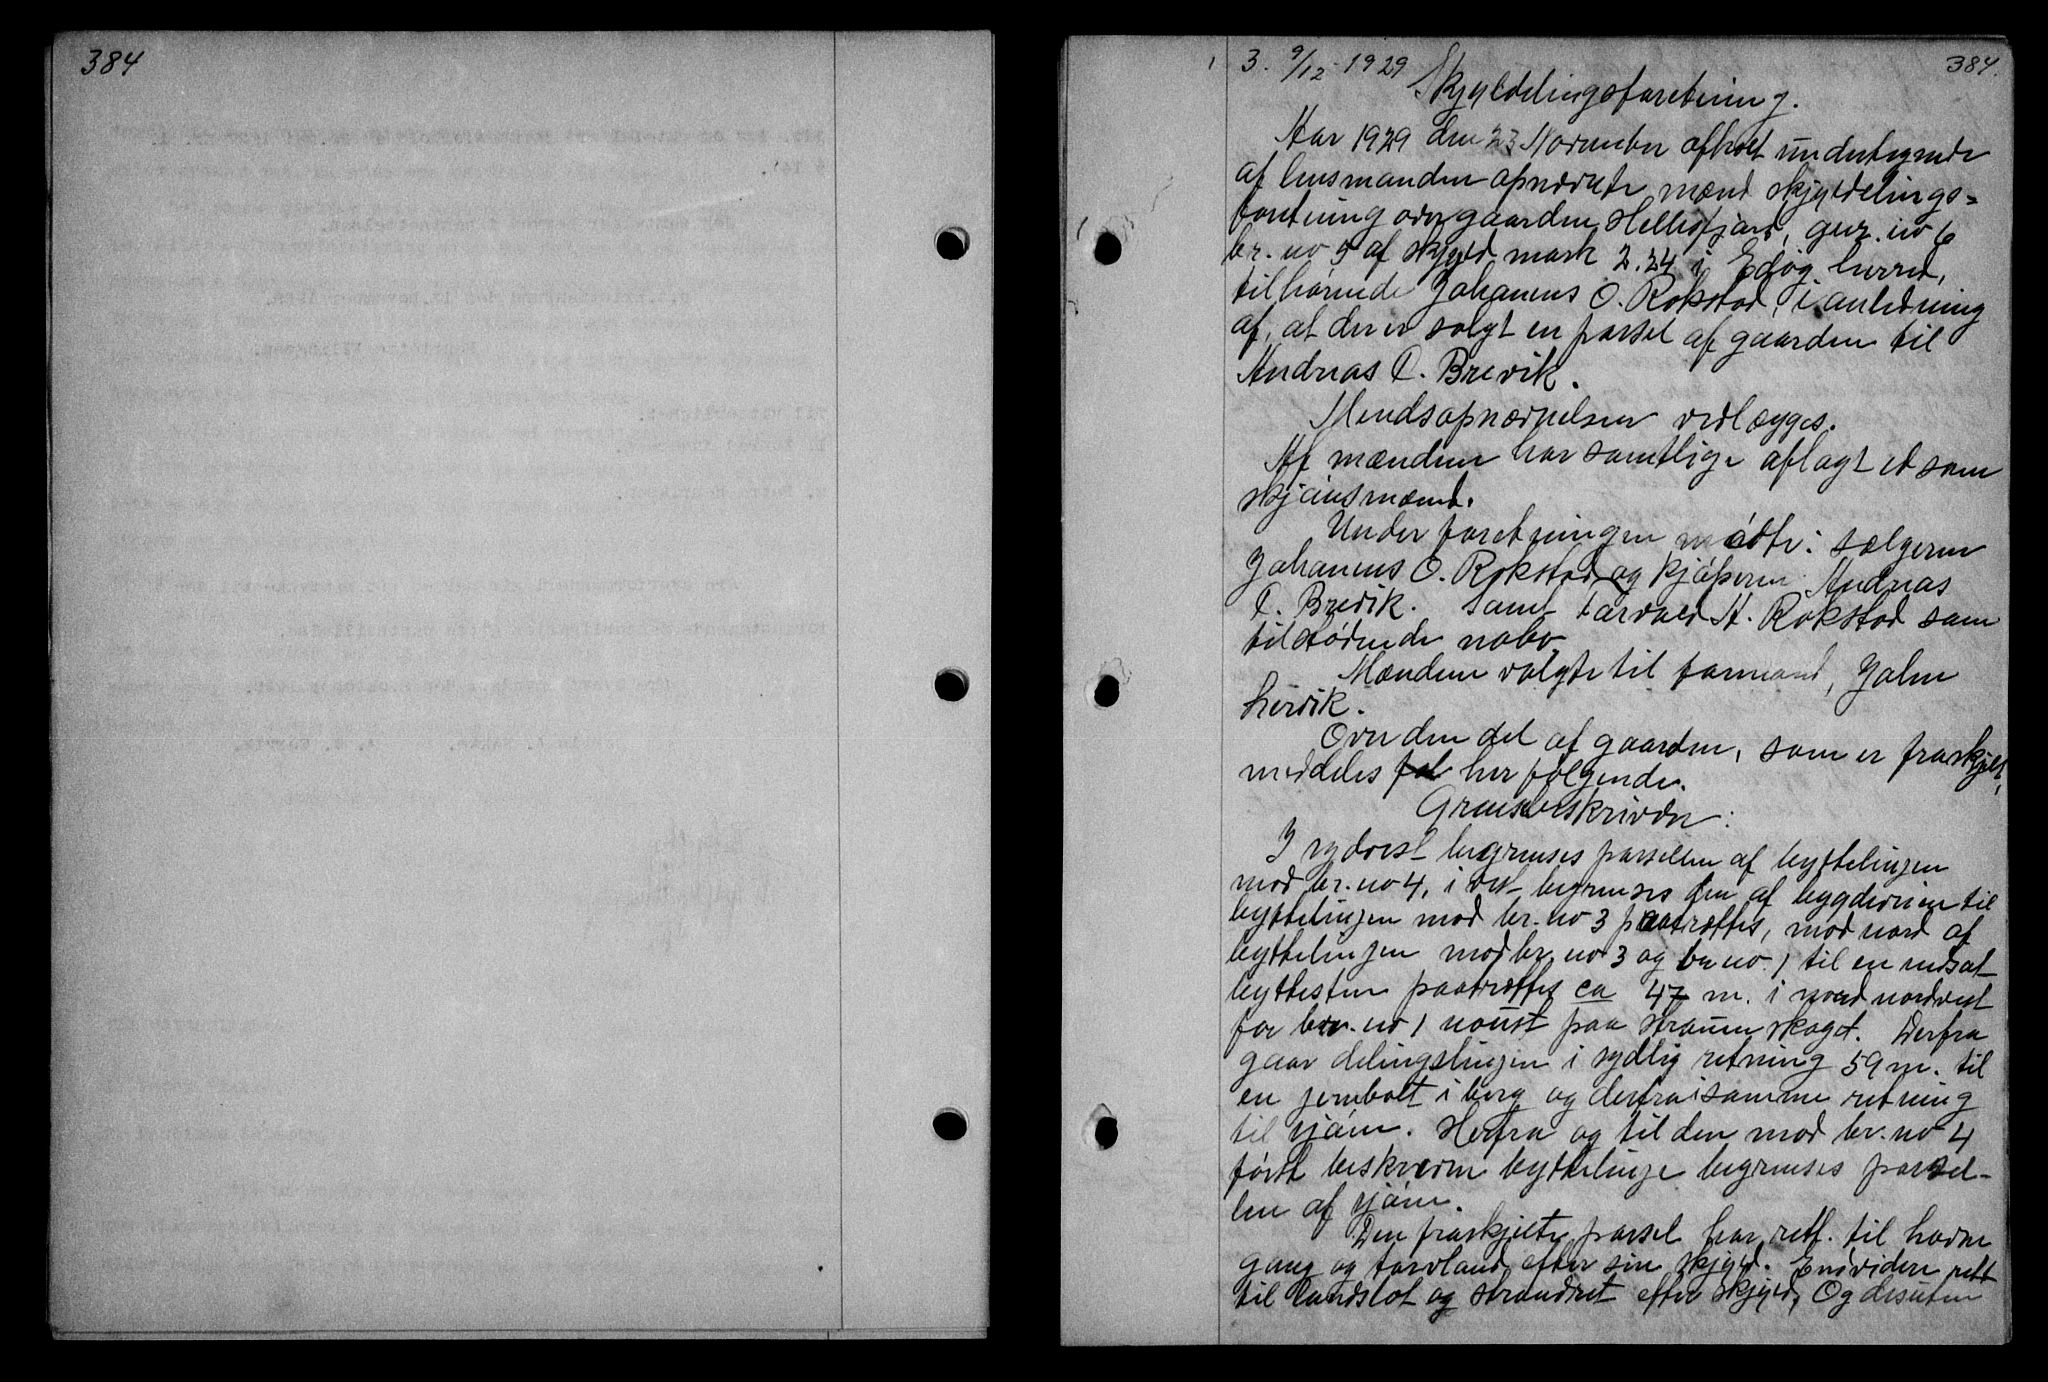 384
3. 9/12 1929
384.
Skylddelingsforetning.
Aar 1929 den 23 November afholt undertegnede
af lensmanden opnævnte mænd skylddelings-
foretning over gaarden Hellesfjord, gnr. no 6
br. no 5 af skyld mark 2.24 i Edøy herred,
tilhørende Johannes O. Rokstad, i anledning
af, at der er solgt en parsel af gaarden til
Andreas O. Brevik.
Mendsopnævnelsen vedlægges.
Af mændene har samtlige aflagt ed som
skjønsmænd.
Under foretningen mødte: sælgeren
Johannes O. Rokstad og kjøperen Andreas
O. Brevik. samt Torvald A. Rokstad som
tilstødende nabo.
Mændene valgte til formand, John
Leirvik.
Over den del af gaarden, som er fraskjilt,
meddeles her følgende.
Grænsebeskrivelse:
I sydvest begrenses parsellen af byttelinjen
mod br. no 4, i vest begrenses den af bygdeveien til
byttelinjen mod br. no 3 paatræffes, mod nord af
byttelinjen mod br. no 3 og br no. 1 til en nedsat
byttesten paatræffes ca 47 m. i nord nordvest
for br. no 1 noust paa Straumskaget. Derfra
gaar delingslinjen i sydlig retning 59 m. til
en jernbolt i berg og derfra i samme retning
til sjøen. Herfra og til den mod br. no 4
først beskrevne byttelinje begrenses parsel-
len af sjøen.
Den fraskjilte parsel har rett. til havne
gang og torvland efter sin skyld. Endvidere rett
til landslot og strandret efter skyld, Og desuten